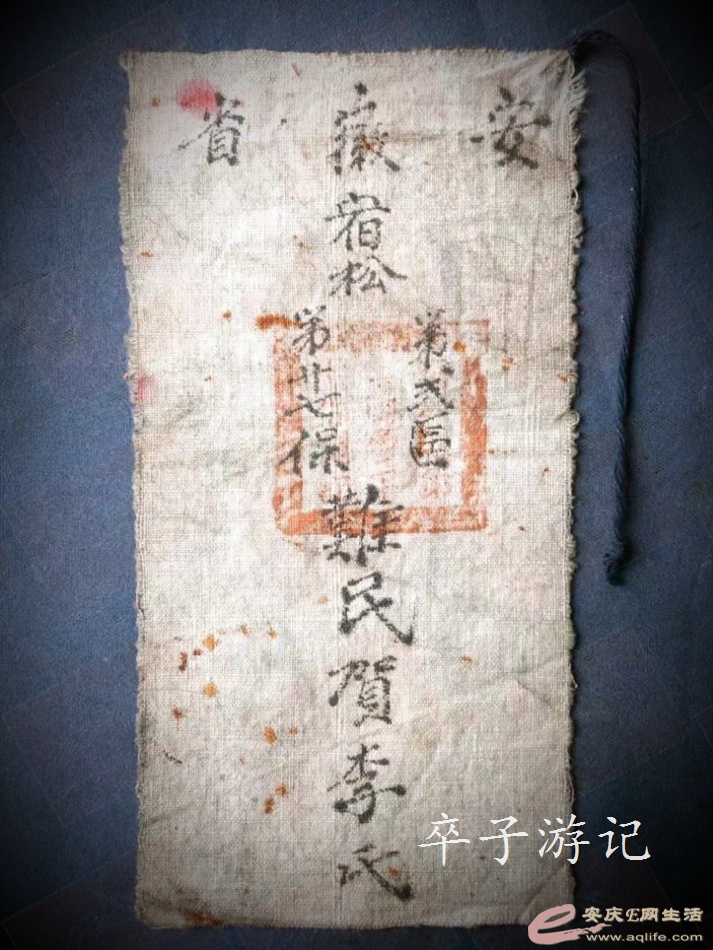 安徽省
宿松
第弍區
第廿七保
難民賀李氏
卒子游记
安庆E网生活
www.aqlife.com